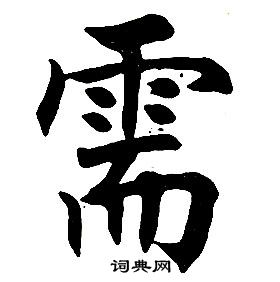 需
词典网